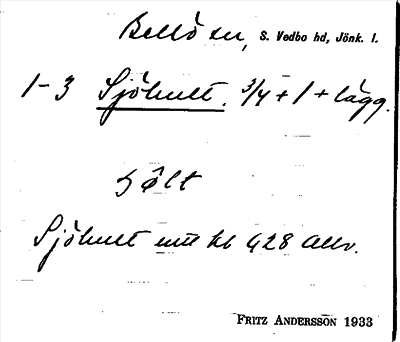 Bellö sn, S. Vedbo hd, Jönk. l.
1-3 Sjöhult. 3/4 + 1 + lägg.
Sjöhult mtt kb 428 Allv.
FRITZ ANDERSSON 1933